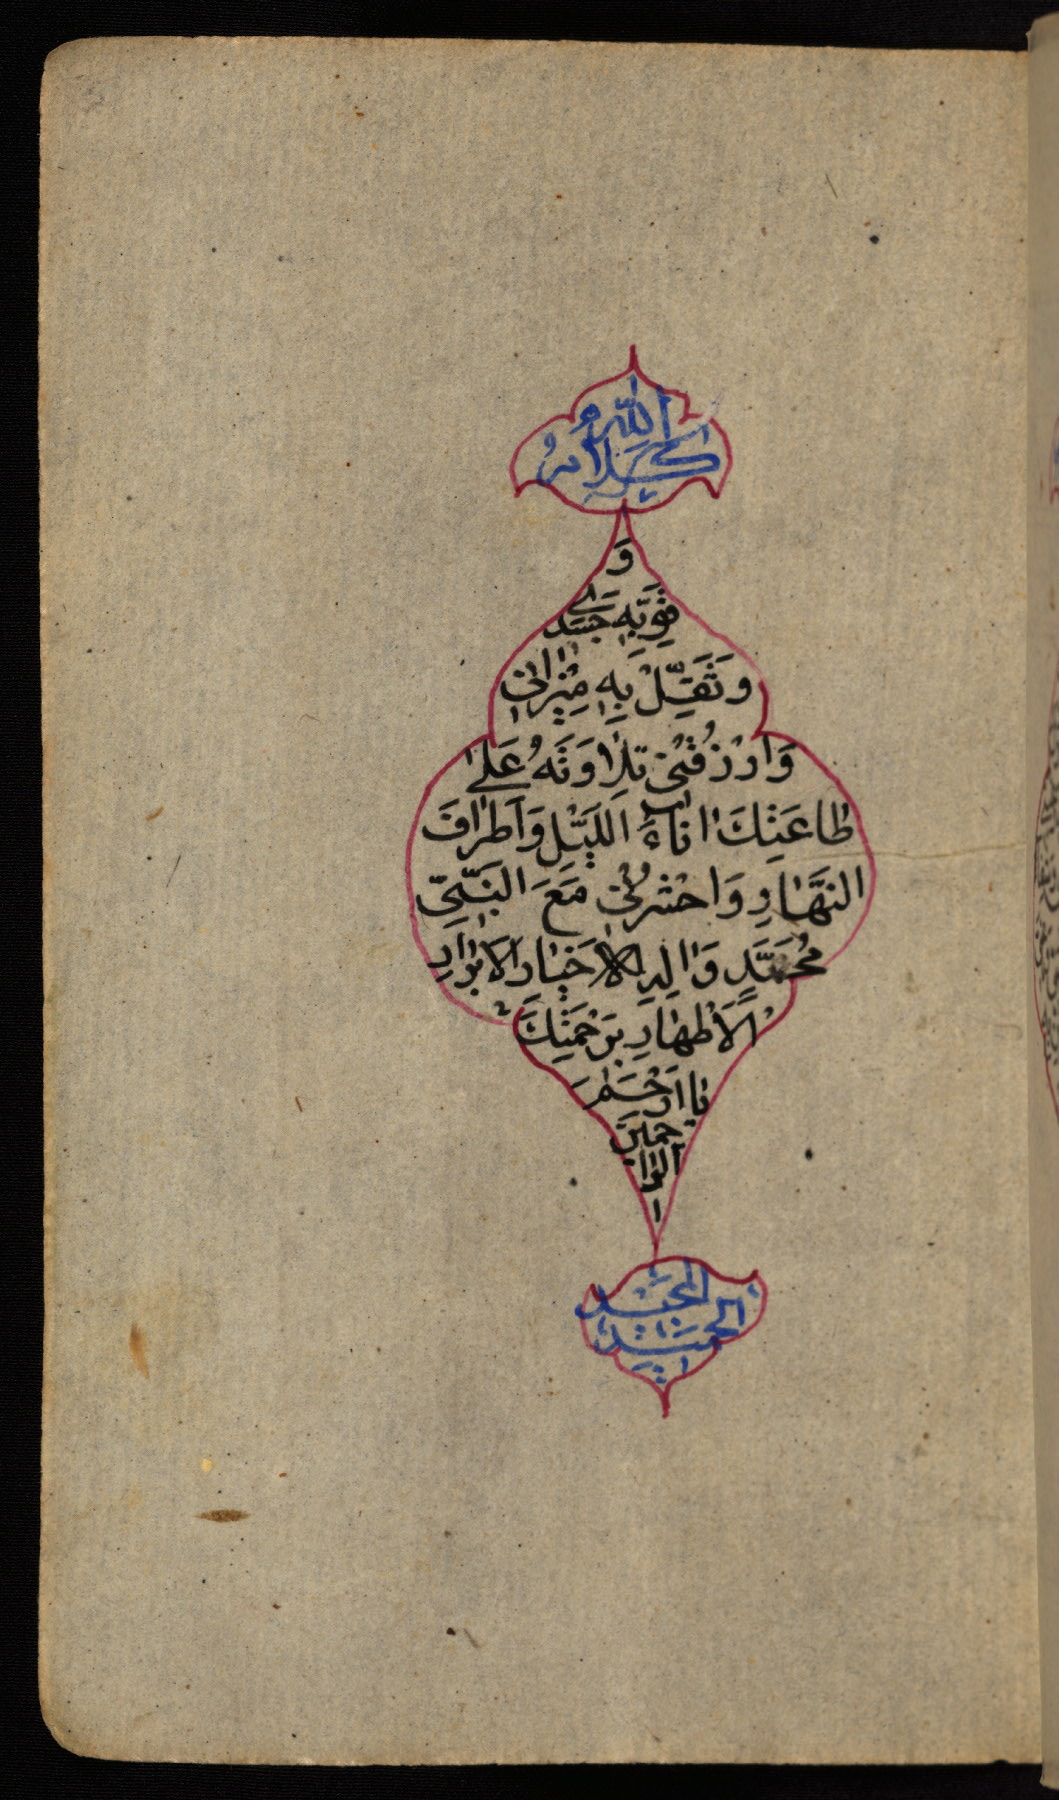 كلام الله
وَ
قَوِّبِهِ جَسَدِي
وَثَقِّلْ بِهِ مِيْزَانِي
وَارْزُقْنِي تِلَاوَتَهُ عَلَى
طَاعَتِكَ انَاءَ اللَّيْلِ وَاَطْرَافَ
النَّهَارِ وَاحْشُرْنِي مَعَ النَّبِيِّ
مُحَمَّدٍ وَالِهِ الاَخْيَارِ الاَبْرَارِ
الاَطْهَارِ بِرَحْمَتِكَ
يَا اَرْحَمَ
الرَّاحِمِينَ
المجيد
الحميد